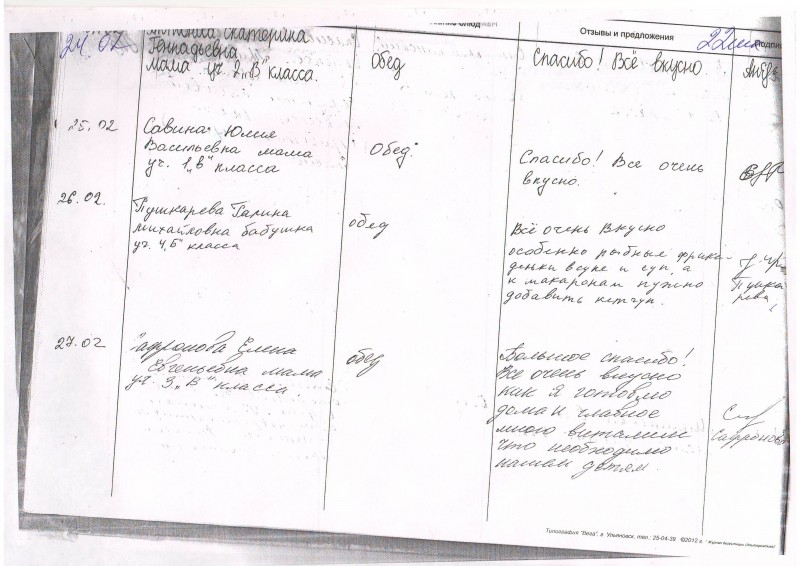 Отзывы и предложения
24.02
Екатерина
Геннадьевна
мама уч. 2 „В" класса.
обед
Спасибо! Всё вкусно.
25.02
Савина Юлия
Васильевна мама
уч. 1 „В" класса
Обед.
Спасибо! Все очень
вкусно.
26.02.
Пушкарева Галина
Михайловна бабушка
уч. 4 „Б" класса
обед
Всё очень вкусно
особенно рыбные фрика-
дельки в супе и суп, а
к макаронам нужно
добавить кетчуп.
Пушка
рева
27.02
Сафронова Елена
Евгеньевна мама
уч. 3 „В" класса.
обед
Большое спасибо!
Все очень вкусно
как я готовлю
дома и главное
много витамин
что необходимо
нашем детям.
Сафронова
Типография "Вега". г. Ульяновск, тел.: 25-04-39 ©2012 г.